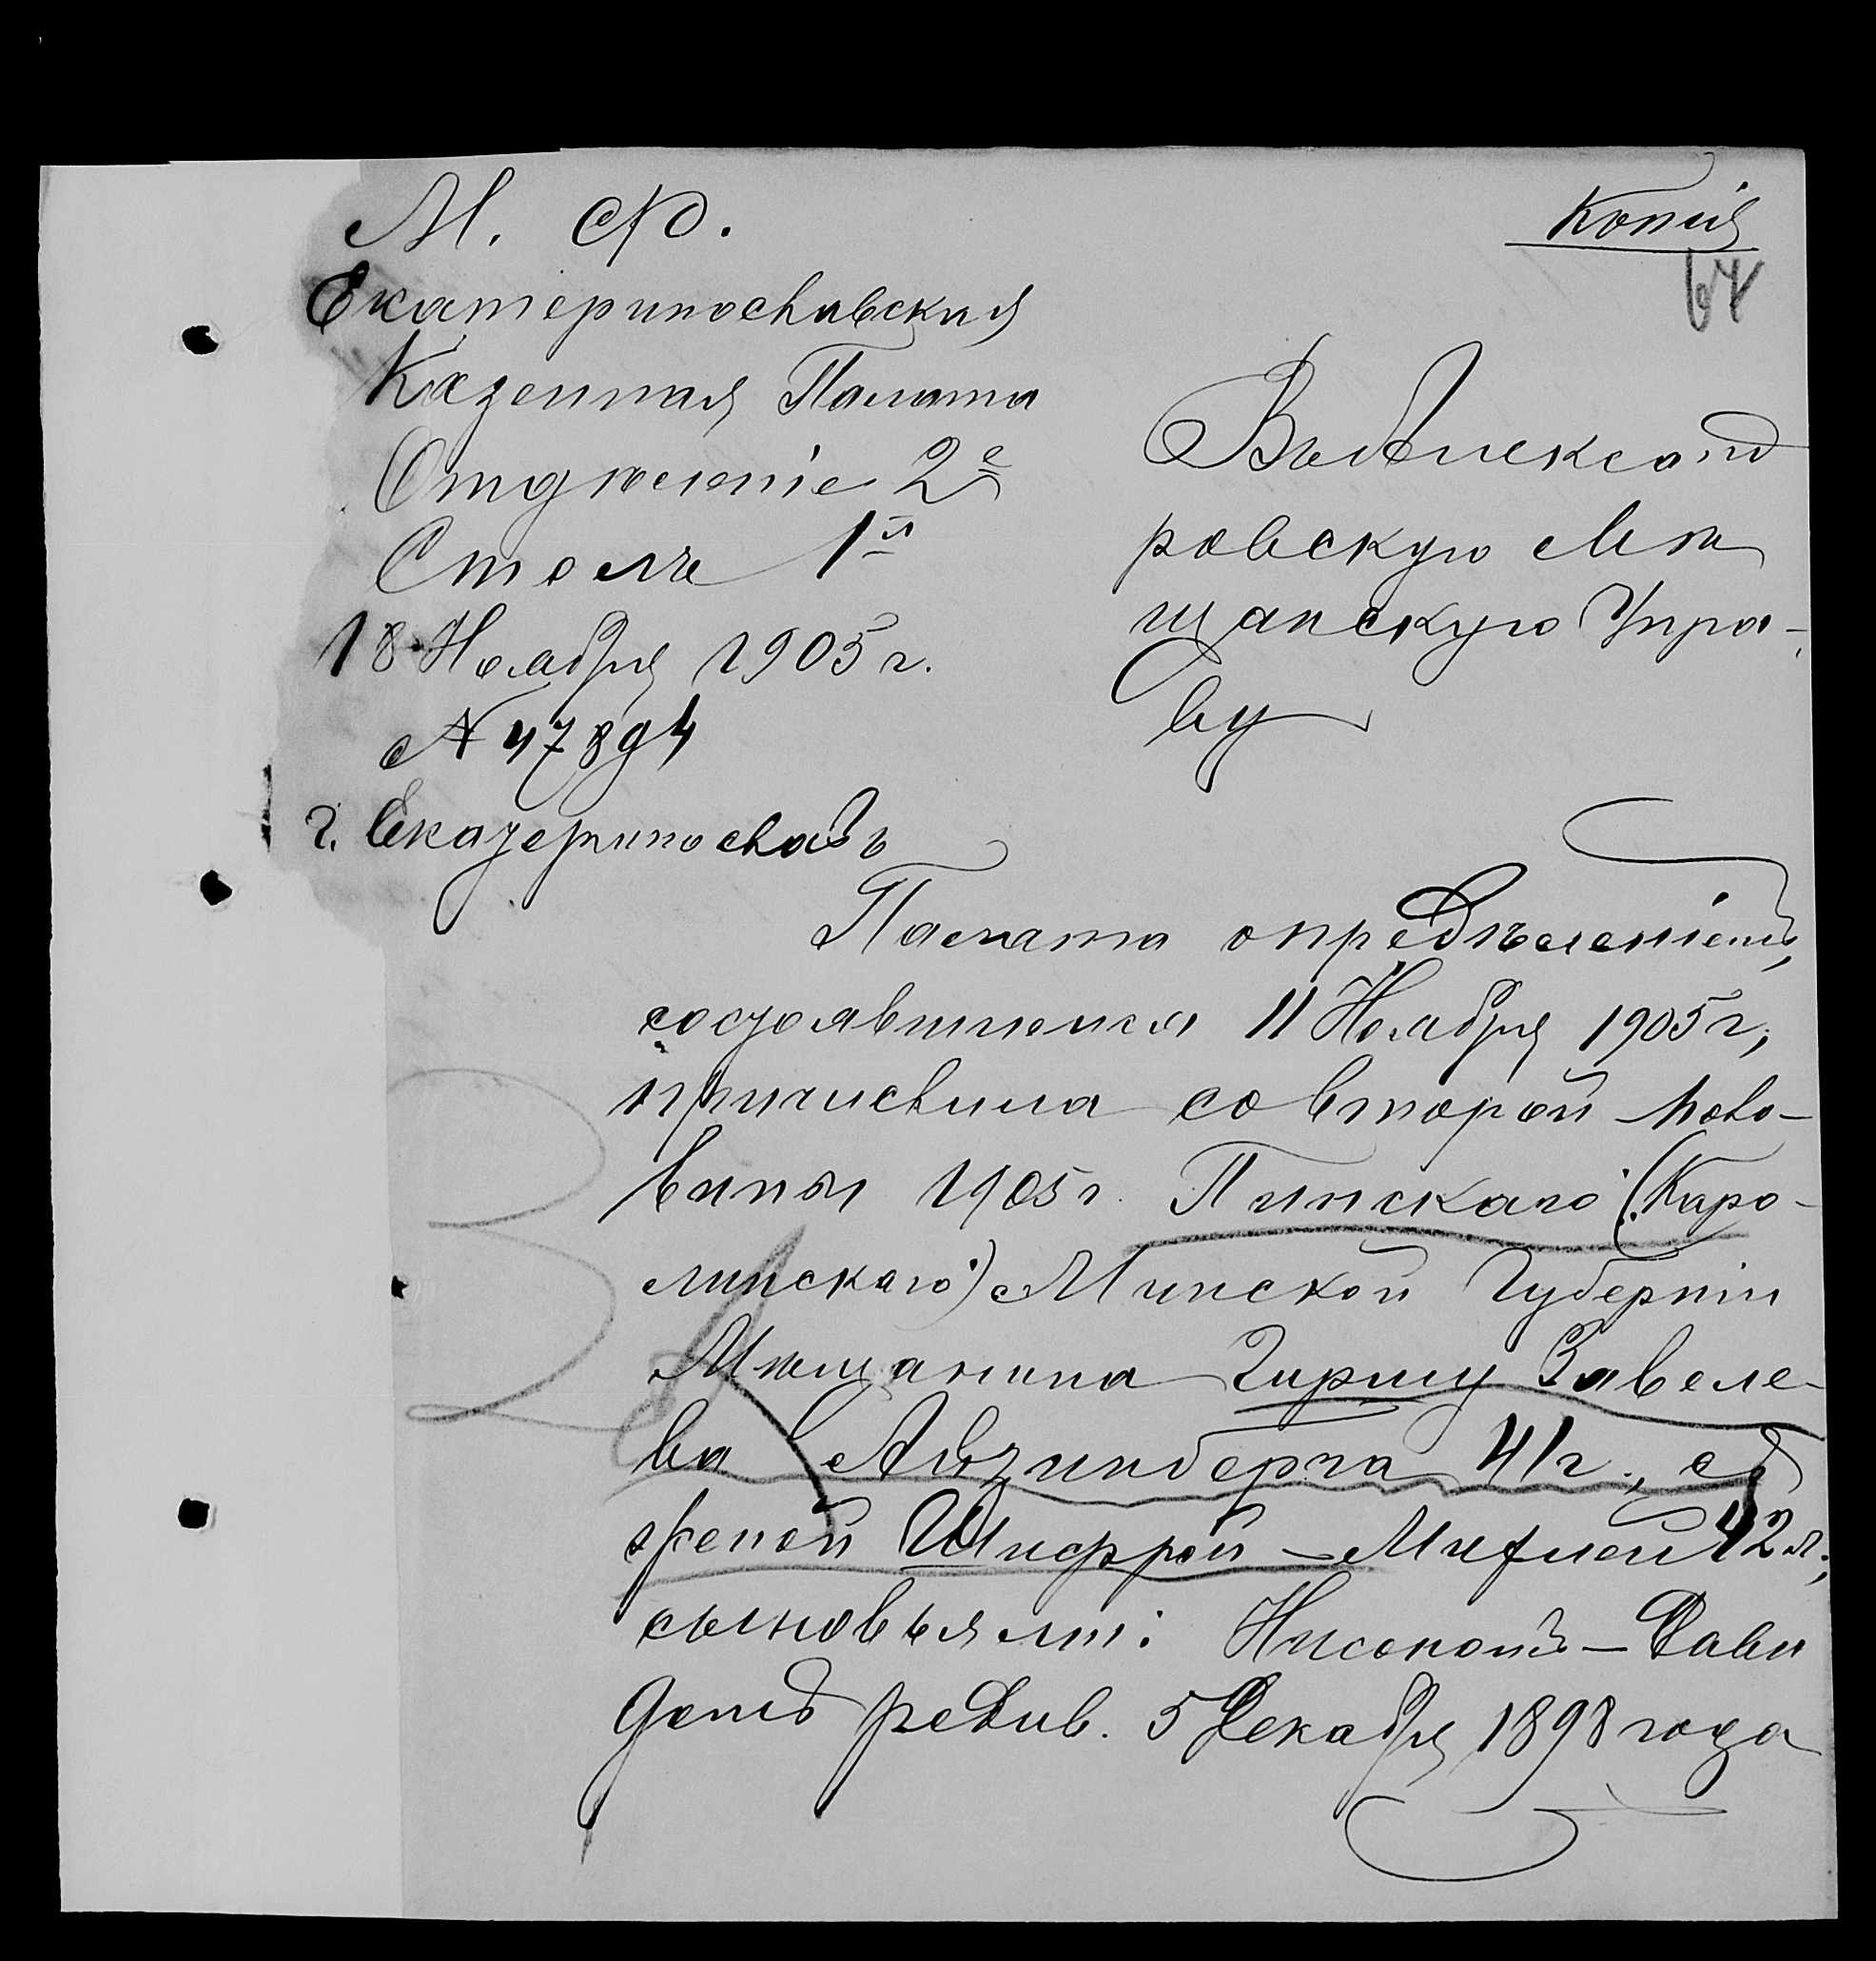 М. Ф.
Екатеринославская
Казенная Палата
Отдѣленіе 2е
Столъ 1й
18 Ноября 1905 г.
№ 47894
г. Екатеринославъ
Копія
64
Въ Александ
ровскую Мѣ
щанскую Упра-
ву
Палата опредѣленіемъ,
состоявшимся 11 Ноября 1905 г,
причислила со второй поло-
вины 1905 г. Пинскаго (Каро-
линскаго) Минской Губерніи
Мѣщанина Гиршу Завеле-
ва Айзинберга 41 г., съ
женой Шифрой-Михлей 42 л.,
сыновьями: Нисономъ-Дави
домъ родив. 5 Декабря 1898 года